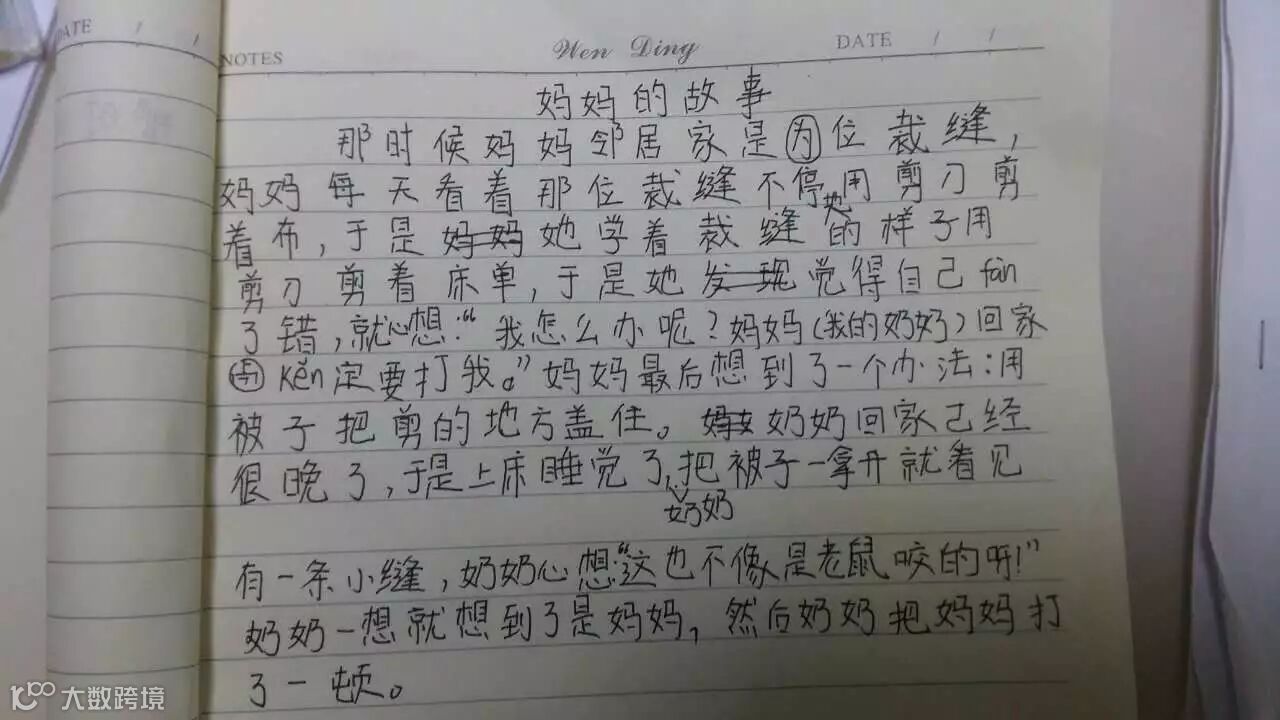 DATE / /
NOTES Wen Ding DATE / /
妈妈的故事
那时候妈妈邻居家是为位裁缝，
妈妈每天看着那位裁缝不停地用剪刀剪
着布，于是妈妈她学着裁缝的样子用
剪刀剪着床单，于是她发现觉得自己fàn
了错，就心想：“我怎么办呢？妈妈（我的奶奶）回家
kěn定要打我。”妈妈最后想到了一个办法：用
被子把剪的地方盖住。奶奶回家已经
很晚了，于是上床睡觉了，奶奶把被子一拿开就看见
有一条小缝，奶奶心想：“这也不像是老鼠咬的呀！”
奶奶一想就想到了是妈妈，然后奶奶把妈妈打
了一顿。
大数跨境